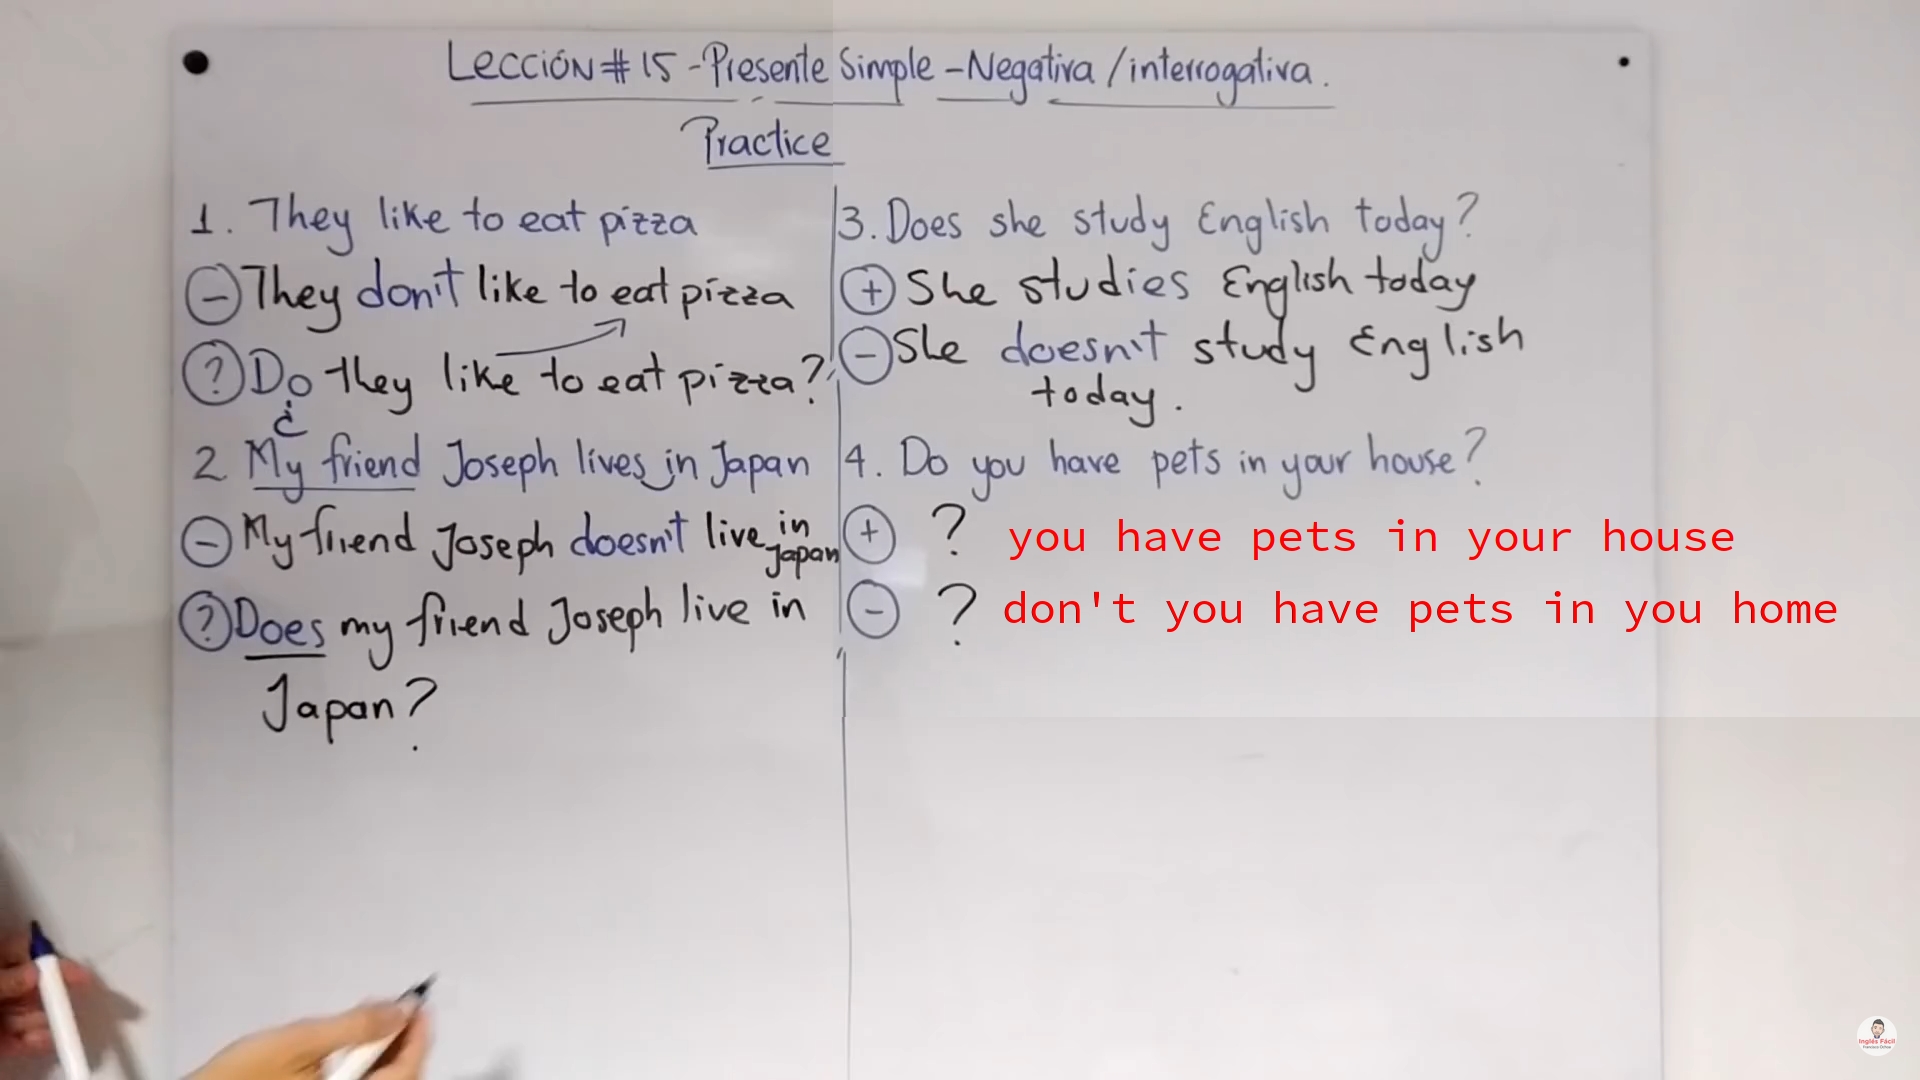 Lección # 15 - Presente Simple - Negativa / interrogativa.
Practice
1. They like to eat pizza
- They don't like to eat pizza
? Do they like to eat pizza?
¿
2 My friend Joseph lives in Japan
- My friend Joseph doesn't live in Japan
? Does my friend Joseph live in
Japan?
3. Does she study English today?
+ She studies English today
- She doesn't study English
today.
4. Do you have pets in your house?
+ ? you have pets in your house
- ? don't you have pets in you home
Inglés Fácil